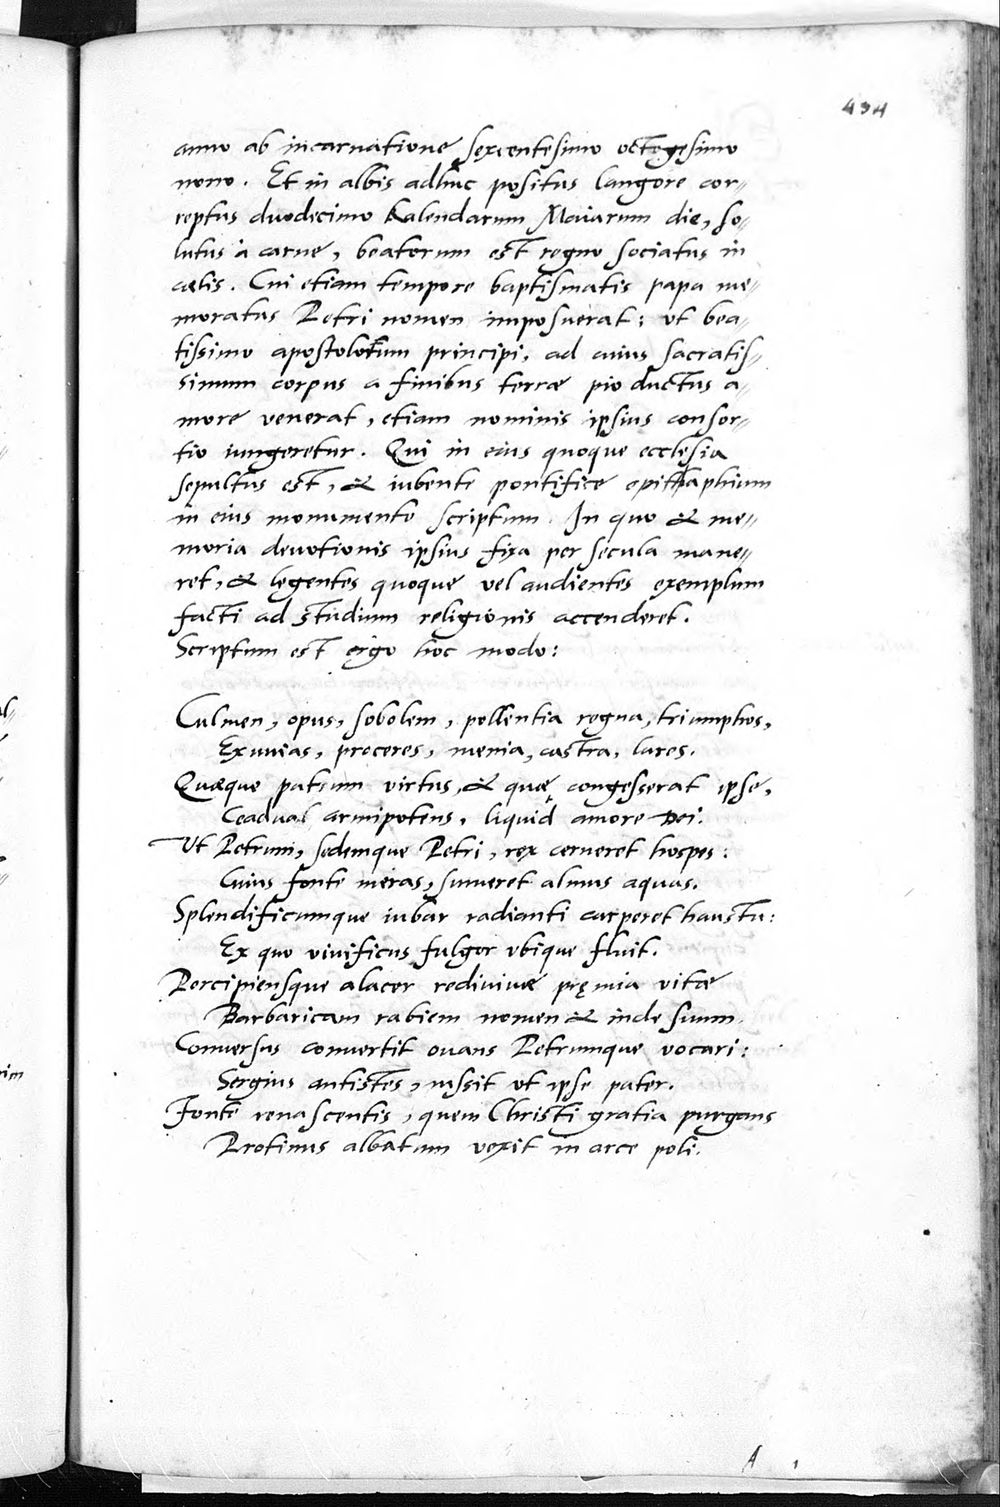 434
anno ab incarnatione sexcentesimo octogesimo
nono. Et in albis adhuc positus langore cor-
reptus duodecimo Kalendarum Maiarum die, so-
lutus à carne, beatorum est regno sociatus in
cælis. Cui etiam tempore baptismatis papa me-
moratus Petri nomen imposuerat: ut bea-
tissimo apostolorum principi, ad cuius sacratis-
simum corpus a finibus terræ pio ductus a-
more venerat, etiam nominis ipsius consor-
tio iungeretur. Qui in eius quoque ecclesia
sepultus est, & iubente pontifice epithaphium
in eius monumento scriptum. In quo & me-
moria devotionis ipsius fixa per secula mane-
ret, & legentes quoque vel audientes exemplum
facti ad studium religionis accenderet.
Scriptum est ergo hoc modo:
Culmen, opus, sobolem, pollentia regna, triumphos,
Exuvias, proceres, menia, castra, lares.
Quæque patrum virtus, & quę congesserat ipse,
Ceadual armipotens, liquid amore Dei.
Ut Petrum, sedemque Petri, rex cerneret hospes:
Cuius fonte meras, sumeret almus aquas.
Splendificumque iubar radianti carperet haustu:
Ex quo vivificus fulgor ubique fluit.
Percipiensque alacer redivivæ pręmia vitæ
Barbaricam rabiem nomen & inde suum.
Conversus convertit ovans Petrumque vocari:
Sergius antistes, iussit ut ipse pater.
Fonte renascentis, quem Christi gratia purgans
Protinus albatum vexit in arce poli.
A